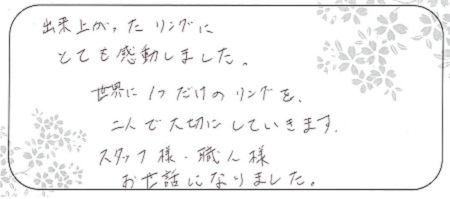 出来上がったリングに
とても感動しました。
世界に1つだけのリングを、
二人で大切にしていきます.
スタッフ様・職人様
お世話になりました。